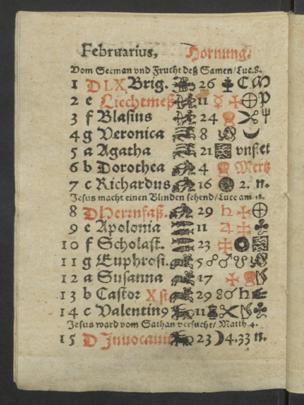 Februarius, Hornung.
Vom Seeman vnd Frucht deß Samen / Luc. 8.
1 D LX Brig. 26
2 e Liechtmeß 11
3 f Blasius 24
4 g Veronica 9
5 a Agatha 21 vnstet
6 b Dorothea 4 Mertz
7 c Richardus 16 2. n.
Jesus macht einen Blinden sehend / Luce am 18.
8 D Herrnfaß. 29
9 e Apolonia 11
10 f Scholast. 23
11 g Euphrosi. 5
12 a Susanna 17
13 b Castor 29
14 c Valentin9 11
Jesus ward vom Sathan versucht / Matth. 4.
15 D Inuocauit 23 4.33 n.